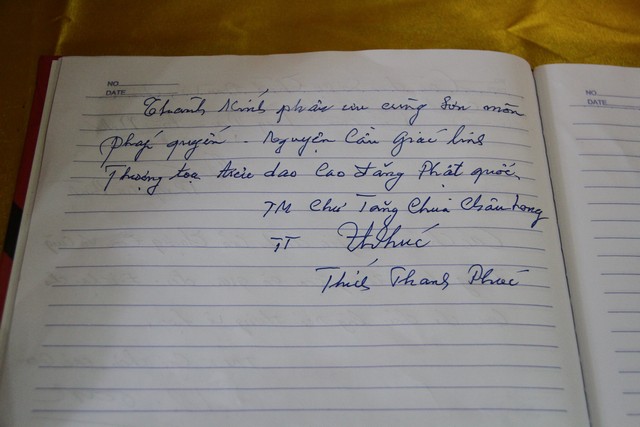 NO.
DATE
Thành Kính phân ưu cùng Sơn môn
pháp quyến. Nguyện Cầu Giác linh
Thượng tọa diêu dao Cao đăng Phật quốc.
TM Chư Tăng Chùa Châu Long
TT
Thích Thanh Phúc
NO.
DATE